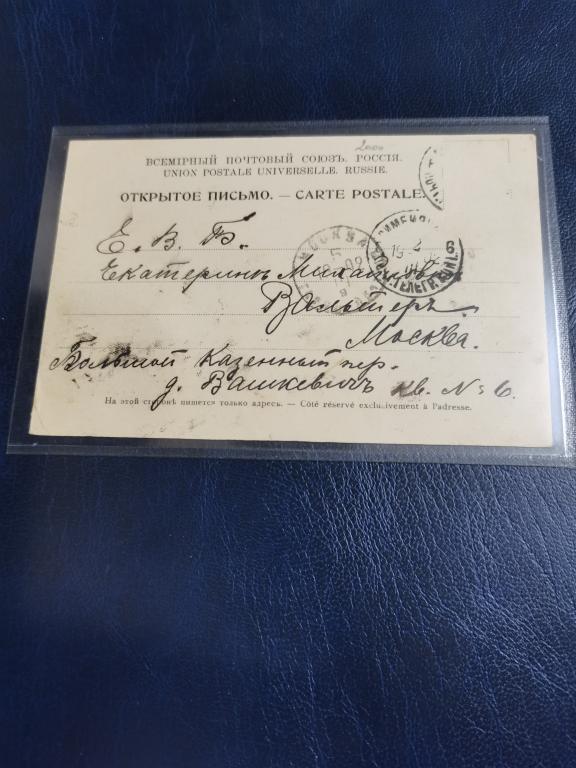 2000
ВСЕМІРНЫЙ ПОЧТОВЫЙ СОЮЗЪ. РОССІЯ.
UNION POSTALE UNIVERSELLE. RUSSIE.
ОТКРЫТОЕ ПИСЬМО. — CARTE POSTALE.
Е. В. Б.
Екатеринѣ Михайловнѣ
Вальтеръ.
Москва.
Большой Казенный пер.
д. Вашкевичъ кв. № 6.
На этой сторонѣ пишется только адресъ. — Côté réservé exclusivement à l'adresse.
МОСКВА
5